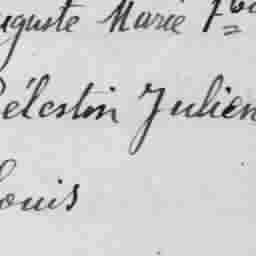 Auguste Marie
Célestin Julien
Louis